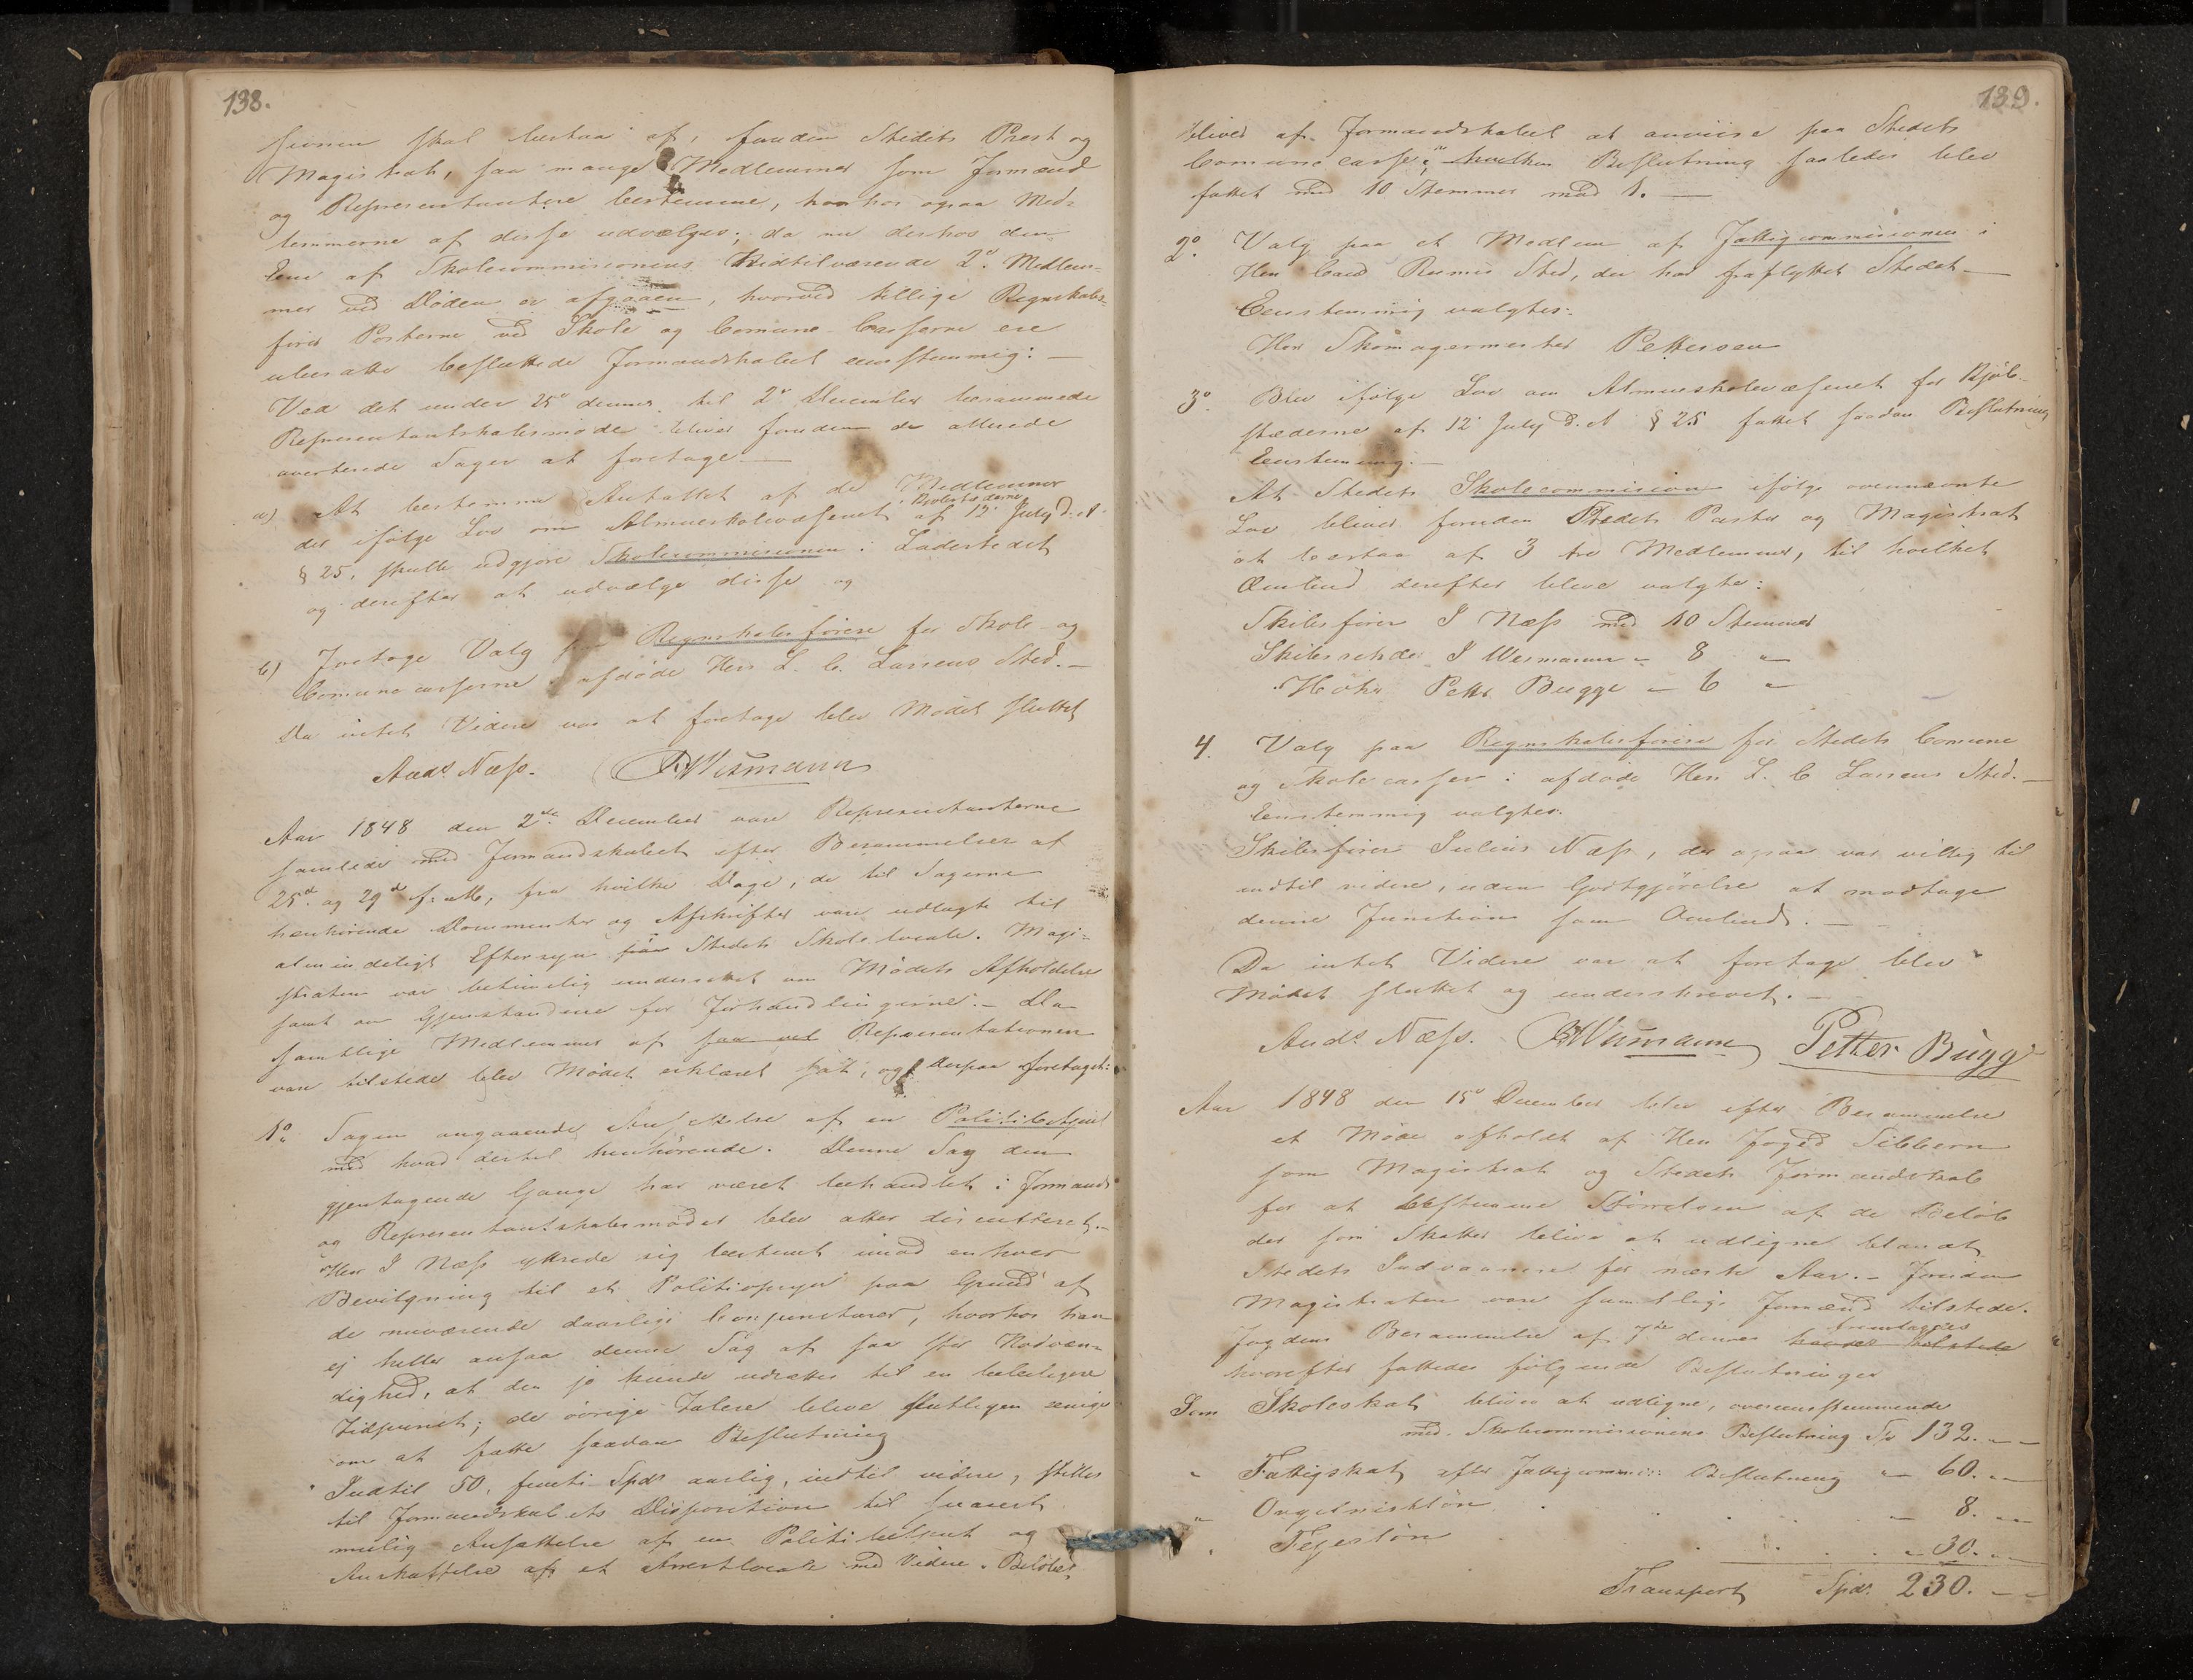 138.
sionen skal bestaa af, foruden Stedets Prest og
Magistrat, saa mange Medlemmer som Formænd
og Representantere bestemme, hvorhos ogsaa Med-
lemmerne af disse udvælges; da nu derhos den
Ene af Skolecommissionens hidtilværende 2de Medlem-
mer ved Døden er afgaaen, hvorved tillige Regnskabs-
fører Posterne ved Skole og Comune Casserne ere
ubesatte besluttede Formandskabet eenstemmig: —
Ved det under 25de dennes til 2den December berammede
Representantskabsmøde bliver foruden de allerede
averterede Sager at foretage —
a) At bestemme Antallet af de Medlemmer
der ifølge Lov om Almueskolevæsenet i Kjøbstæderne af 12te July d. A.
§ 25, skulle udgjøre Skolecommissionen i Ladestedet
og derefter at udvælge disse og
b) Foretage Valg paa Regnskabsførere for Skole- og
Comunecasserne i afdøde Herr L. C. Larsens Sted. —
Da intet Videre var at foretage blev Mødet sluttet
Ands Næss. Wismann
Aar 1848 den 2den December vare Representanterne
samlede med Formandskabet efter Berammelser af
25de og 29de f. M., fra hvilke Dage, de til Sagerne
henhørende Documenter og Afskrifter vare udlagte til
almindeligt Eftersyn paa Stedets Skolelocale. Magi-
straten var betimelig underrettet om Mødets Afholdelse
samt om Gjenstandene for Forhandlingerne. — Da
samtlige Medlemmer af saavel Representationen
vare tilstede blev Mødet erklæret sat, og derpaa foretaget:
1o. Sagen angaaende Ansættelse af en Politibetjent
med hvad dertil henhørende. Denne Sag der
gjentagende Gange har været behandlet i Formands
og Representantskabsmøder blev atter discutteret. —
Herr J Næss yttrede sig bestemt imod enhver
Bevilgning til et Politiopsyn paa Grund af
de nuværende daarlige Conjuncturer, hvorhos han
ej heller ansaa denne Sag af saa stor Nødven-
dighed, at den jo kunde udsættes til en beleiligere
Tidspunct; de øvrige Talere bleve sluttligen enige
om at fatte saadan Beslutning
Indtil 50, femti Spdr aarlig, indtil videre, stilles
til Formandskabets Disposition til snarest
mulig Ansættelse af en Politibetjent og
Anskaffelse af et Arrestlocale med Videre. Beløbet
139.
bliver af Formandskabet at anvise paa Stedets
Comunecasse;" hvilken Beslutning saaledes blev
fattet med 10 Stemmer mod 1. —
2o. Valg paa et Medlem af Fattigcommissionen i
Herr Sted, der har fraflyttet Stedet —
Eenstemmig valgtes:
Herr Skomagermester Pettersen
3o. Blev ifølge Lov om Almueskolevæsenet for Kjøb-
stæderne af 12te July d. A § 25 fattet saadan Beslutning
Eenstemmig: —
At Stedets Skolecommission ifølge ovennævnte
Lov bliver foruden Stedets Pastor og Magistrat
at bestaa af 3 tre Medlemmer, til hvilket
Ombud derefter bleve valgte:
Skibsfører J Næss med 10 Stemmer
Skibsrehder J Wesmann – 8 "
Høker Petter Bugge – 6 "
4. Valg paa Regnskabsfører for Stedets Comune
og Skolecasser i afdøde Herr L. C Larsens Sted. —
Eenstemmig valgtes.
Skibsfører Julius Næss, der ogsaa var villig til
indtil videre, uden Godtgjørelse at modtage
denne Function som Ombud. —
Da intet Videre var at foretage blev
Mødet sluttet og underskrevet. —
Ands Næss. Wismann Petter Bugge
Aar 1848 den 15de December blev efter Berammelse
et Møde afholdt af Herr Foged Sibbern
som Magistrat og Stedets Formandskab
for at bestemme Størrelsen af de Beløb
der som Skatter blive at udligne blandt
Stedets Indvaanere for næste Aar. — Foruden
Magistraten vare samtlige Formænd tilstede.
Fogdens Berammelse af 7de dennes fremlagdes
hvorefter fattedes følgende Beslutninger
Som Skoleskat bliver at udligne, overeensstemmende
med Skolecommissionens Beslutning Sp 132. — —
" Fattigskat efter Fattigcommis: Beslutning " 60. — —
" Orgelnistløn . . . . . — 8. — —
" Fejerløn . . . . . " 30. — —
Transport Spdr 230. — —